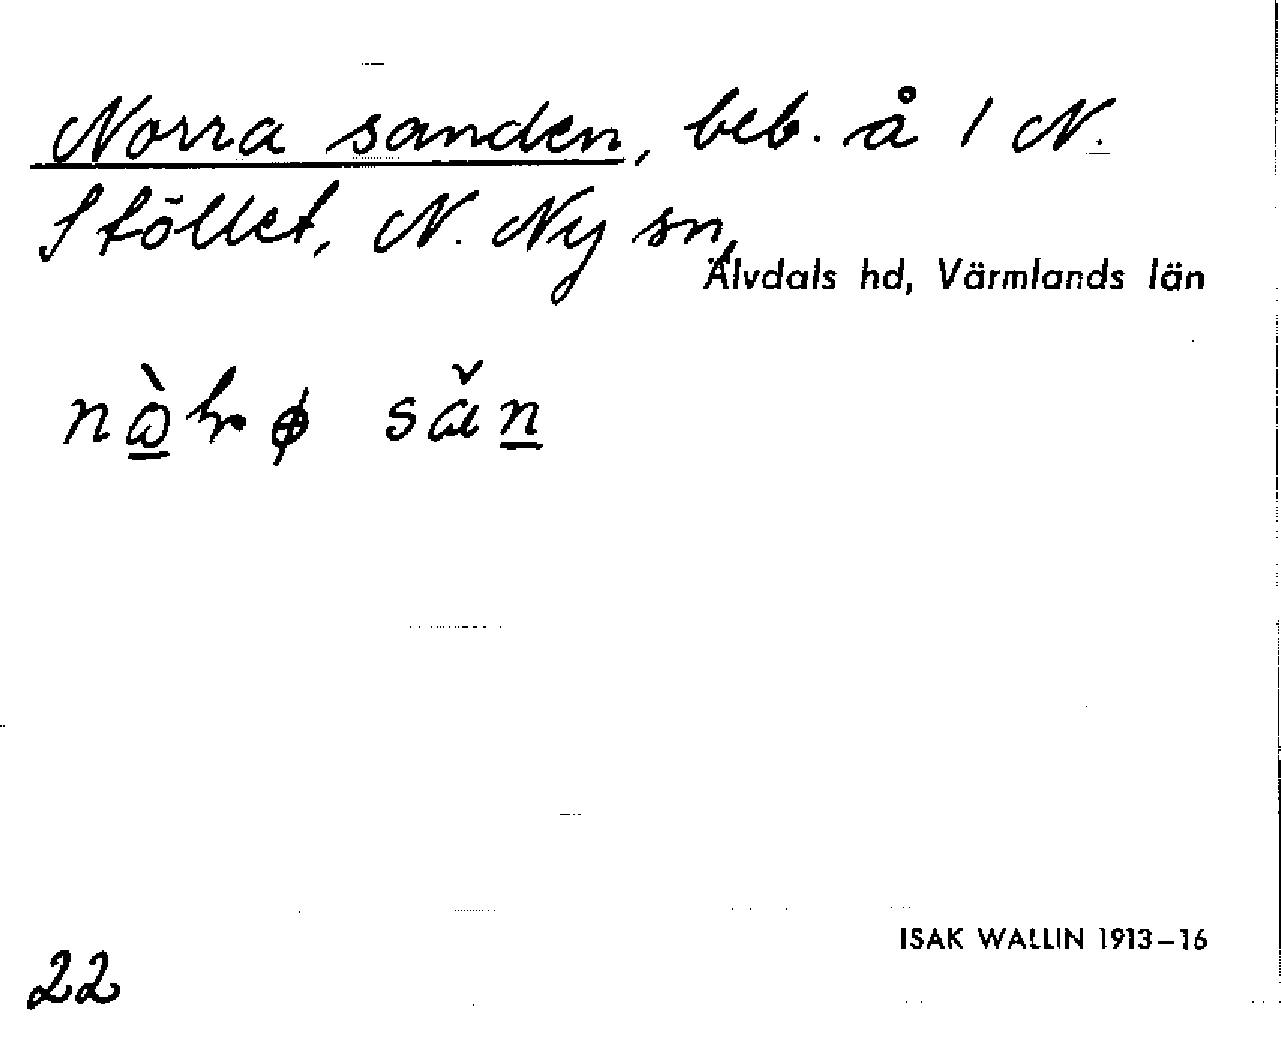 Norra sanden, beb. å 1 N.
Stöllet, N. Ny sn,
Älvdals hd, Värmlands län
ISAK WALLIN 1913–16
22